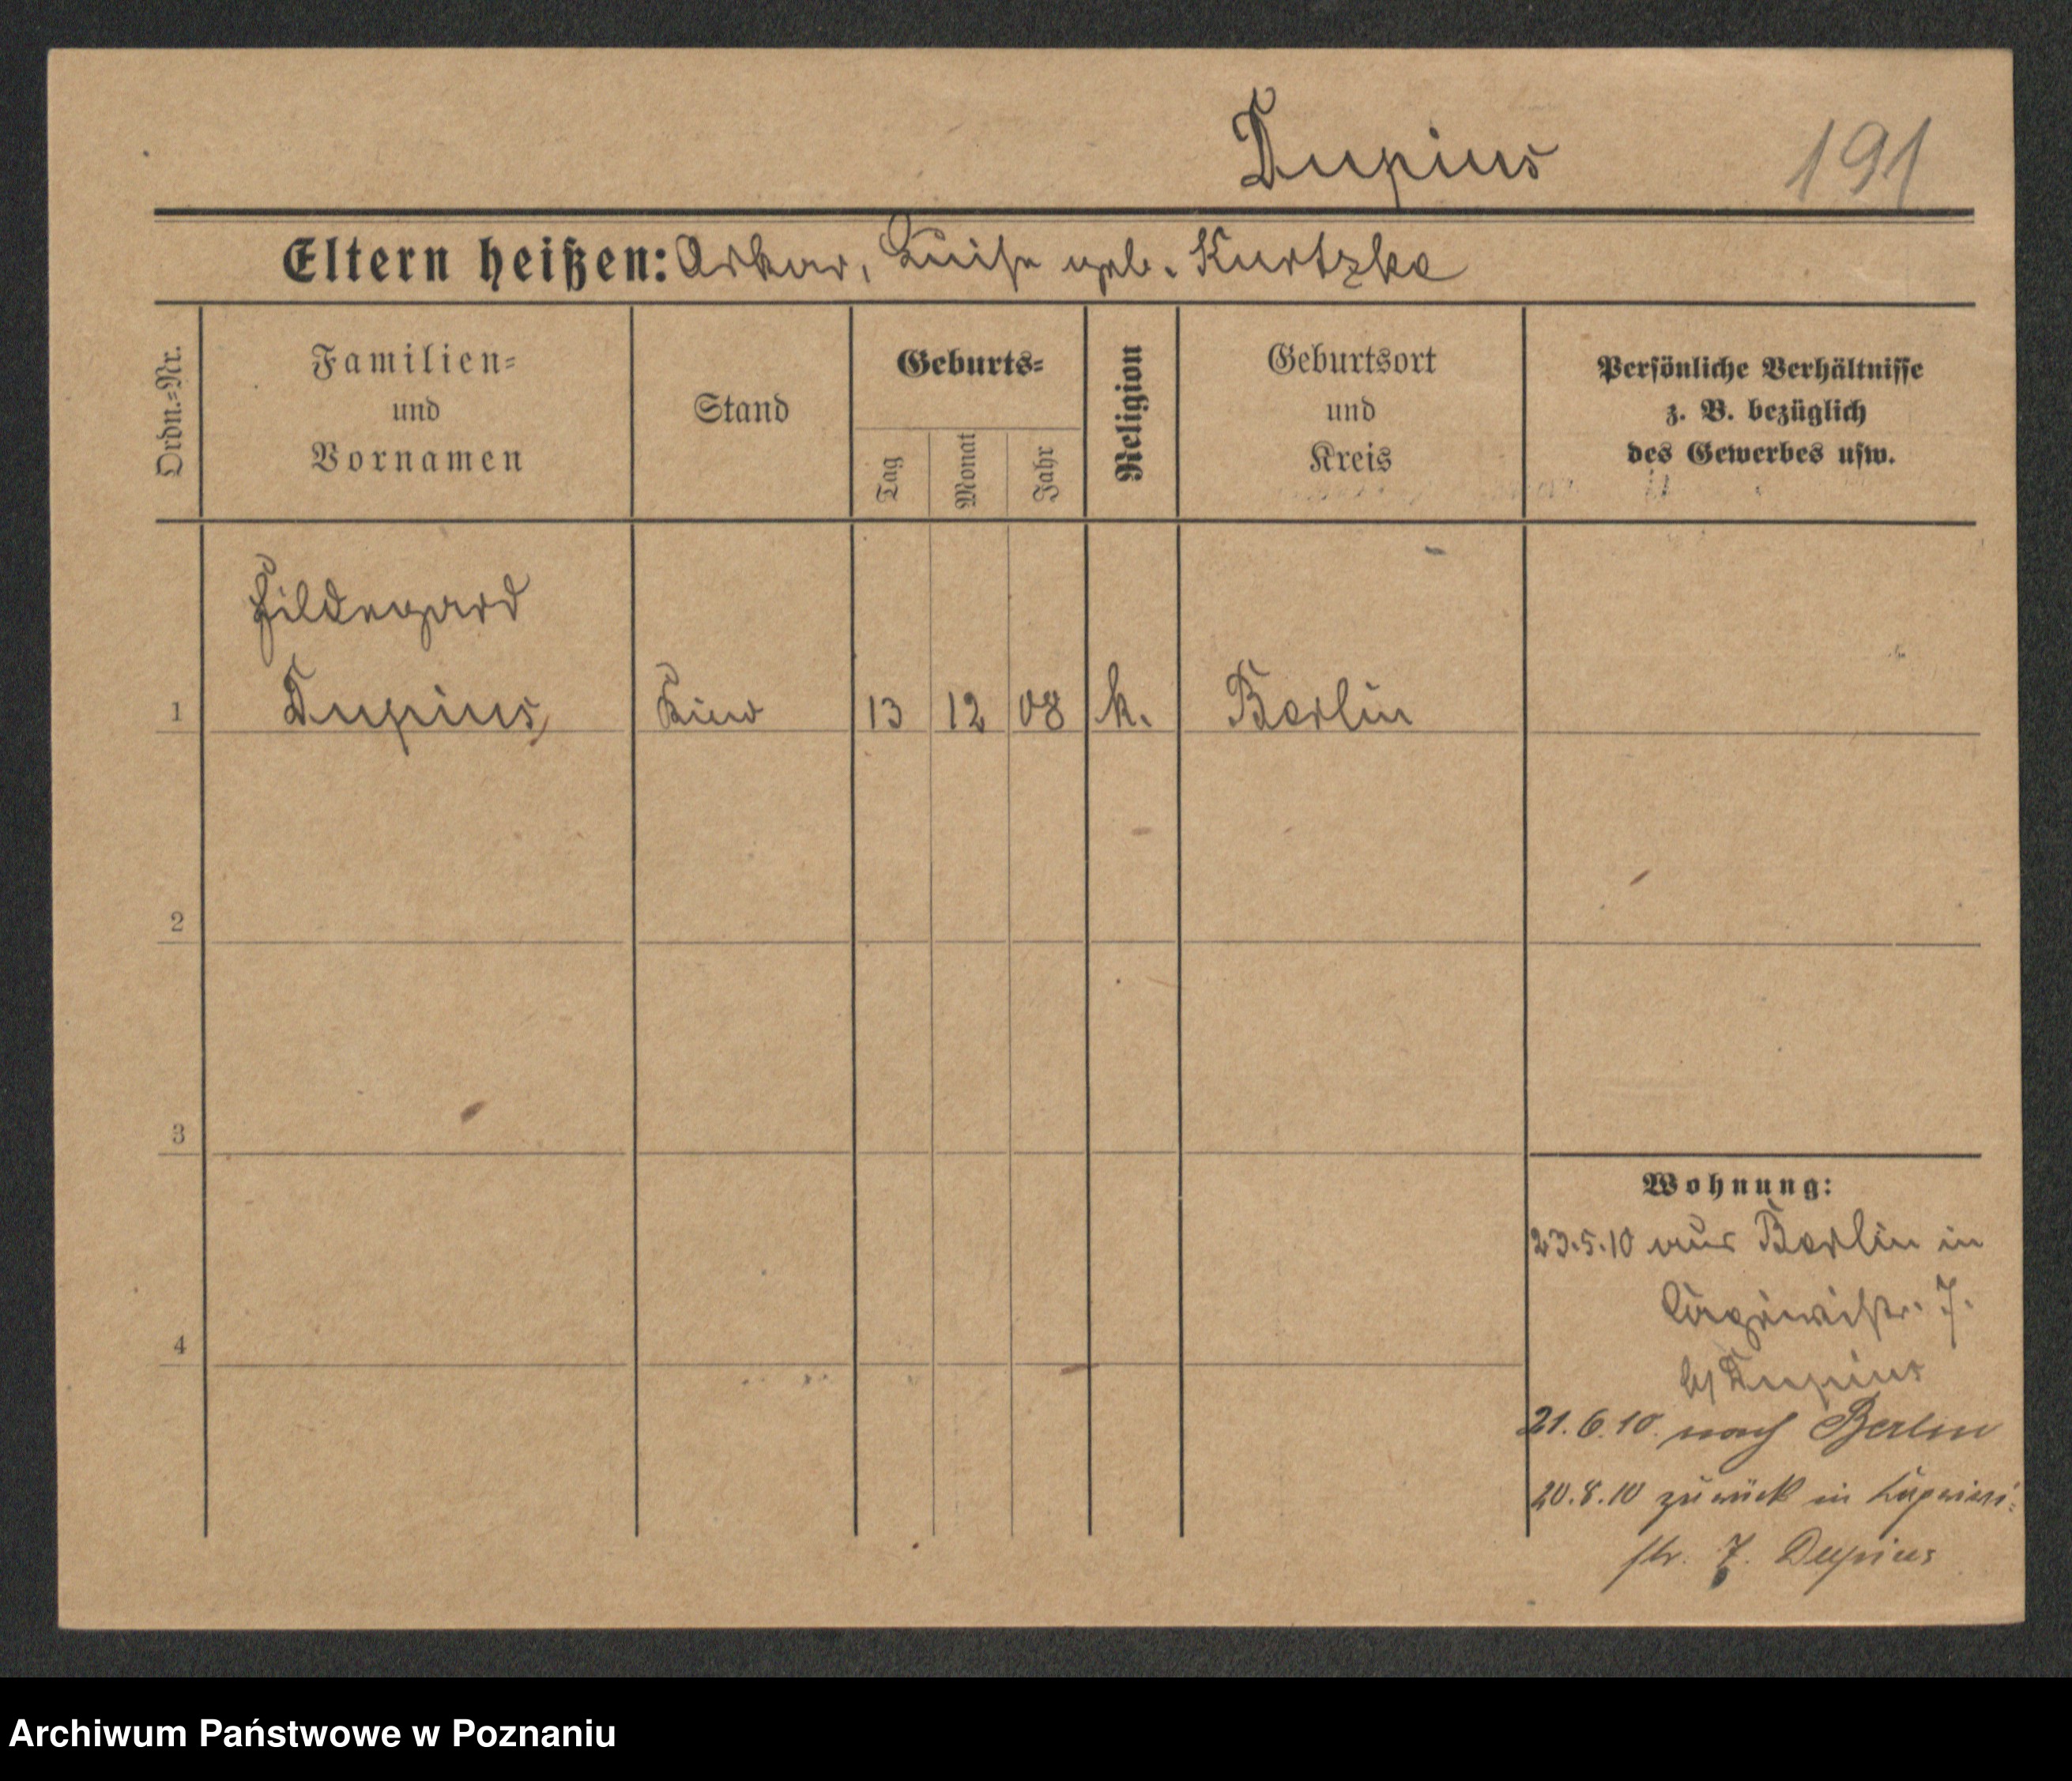 Dupius 191
Eltern heißen: Oskar, Luise geb. Kurtzka
Ordn.-Nr.
Familien-
und
Vornamen
Stand
Geburts-
Tag
Monat
Jahr
Religion
Geburtsort
und
Kreis
Persönliche Verhältnisse
z. B. bezüglich
des Gewerbes usw.
Hildegard
1 Dupius, Kind 13 12 08 k. Berlin
2
3
4
Wohnung:
23.5.10 aus Berlin in
7.
b/ Dupius
21.6.10. nach Berlin
20.8.10 zurück in
str. 7. Dupius
Archiwum Państwowe w Poznaniu